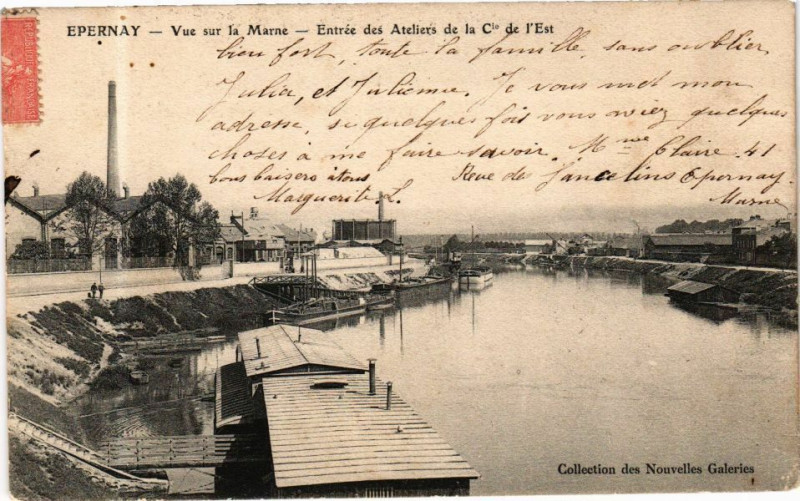 EPERNAY — Vue sur la Marne — Entrée des Ateliers de la Cie de l'Est
bien fort, toute la famille, sans oublier,
Julia, et Julienne. Je vous met mon
adresse, si quelques fois vous aviez quelques
choses à me faire savoir. Mme Claire 41
bons baisers à tous Rue des Jancelins Epernay.
Marguerite L. Marne
Collection des Nouvelles Galeries